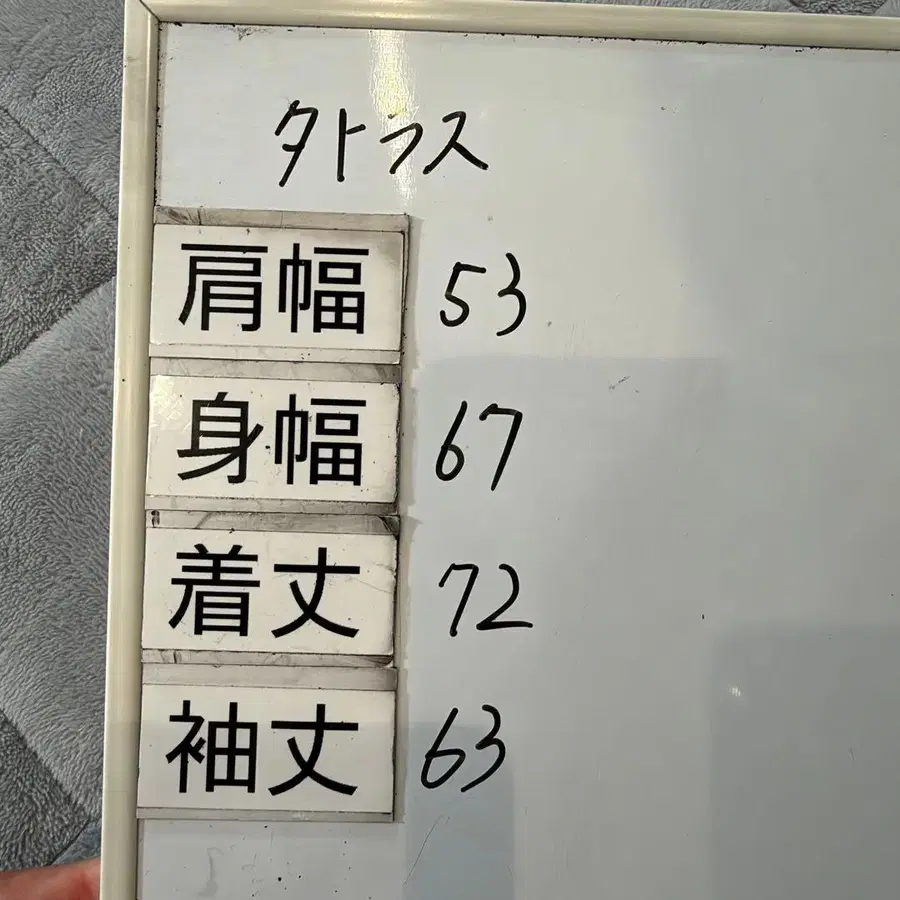 タトラス
肩幅 53
身幅 67
着丈 72
袖丈 63